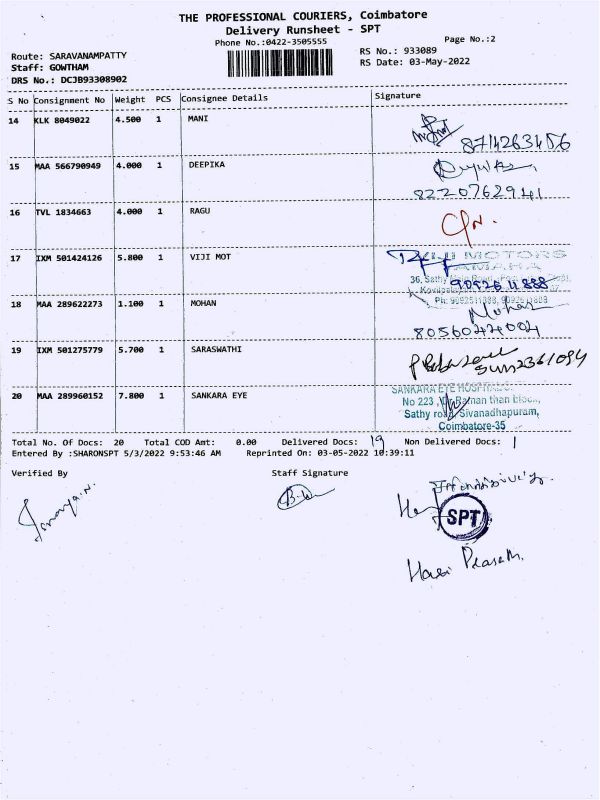 THE PROFESSIONAL COURIERS, Coimbatore
Delivery Runsheet - SPT
Phone No.:0422-3505555
Page No.:2
Route: SARAVANAMPATTY
RS No.: 933089
Staff: GOWTHAM
RS Date: 03-May-2022
DRS No.: DCJB93308902
S No Consignment No Weight PCS Consignee Details Signature
14 KLK 8049022 4.500 1 MANI
8714263456
15 MAA 566790949 4.000 1 DEEPIKA
8220762941
16 TVL 1834663 4.000 1 RAGU
17 IXM 501424126 5.800 1 VIJI MOT
MOTORS
YAMAHA
36, Sathy
9092611888
18 MAA 289622273 1.100 1 MOHAN
Mohan
8056044004
19 IXM 501275779 5.700 1 SARASWATHI
20 MAA 289960152 7.800 1 SANKARA EYE
SANKARA EYE HOSPITAL
No 223 Raman
Sathy road Sivanadhapuram,
Coimbatore-35
Total No. Of Docs: 20 Total COD Amt: 0.00 Delivered Docs: 19 Non Delivered Docs: 1
Entered By :SHARONSPT 5/3/2022 9:53:46 AM Reprinted On: 03-05-2022 10:39:11
Verified By Staff Signature
SPT